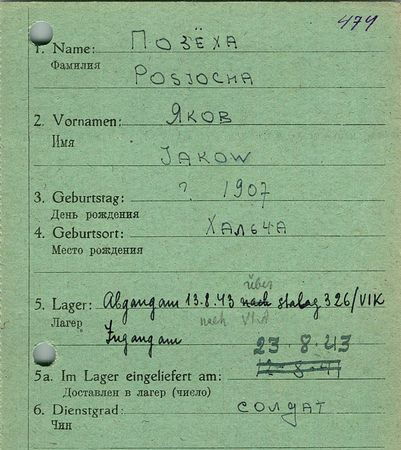 474
1. Name: ПОЗЁХА
Фамилия
POSJOCHA
2. Vornamen: ЯКОВ
Имя
JAKOW
3. Geburtstag: ? 1907
День рождения
4. Geburtsort: ХАЛЬЧА
Место рождения
über
5. Lager: Abgang am 13.8.43 nach stalag 326/VIK
Лагер nach VI A
Zugang am
23.8.43
5a. Im Lager eingeliefert am:
Доставлен в лагер (число)
6. Dienstgrad: солдат
Чин